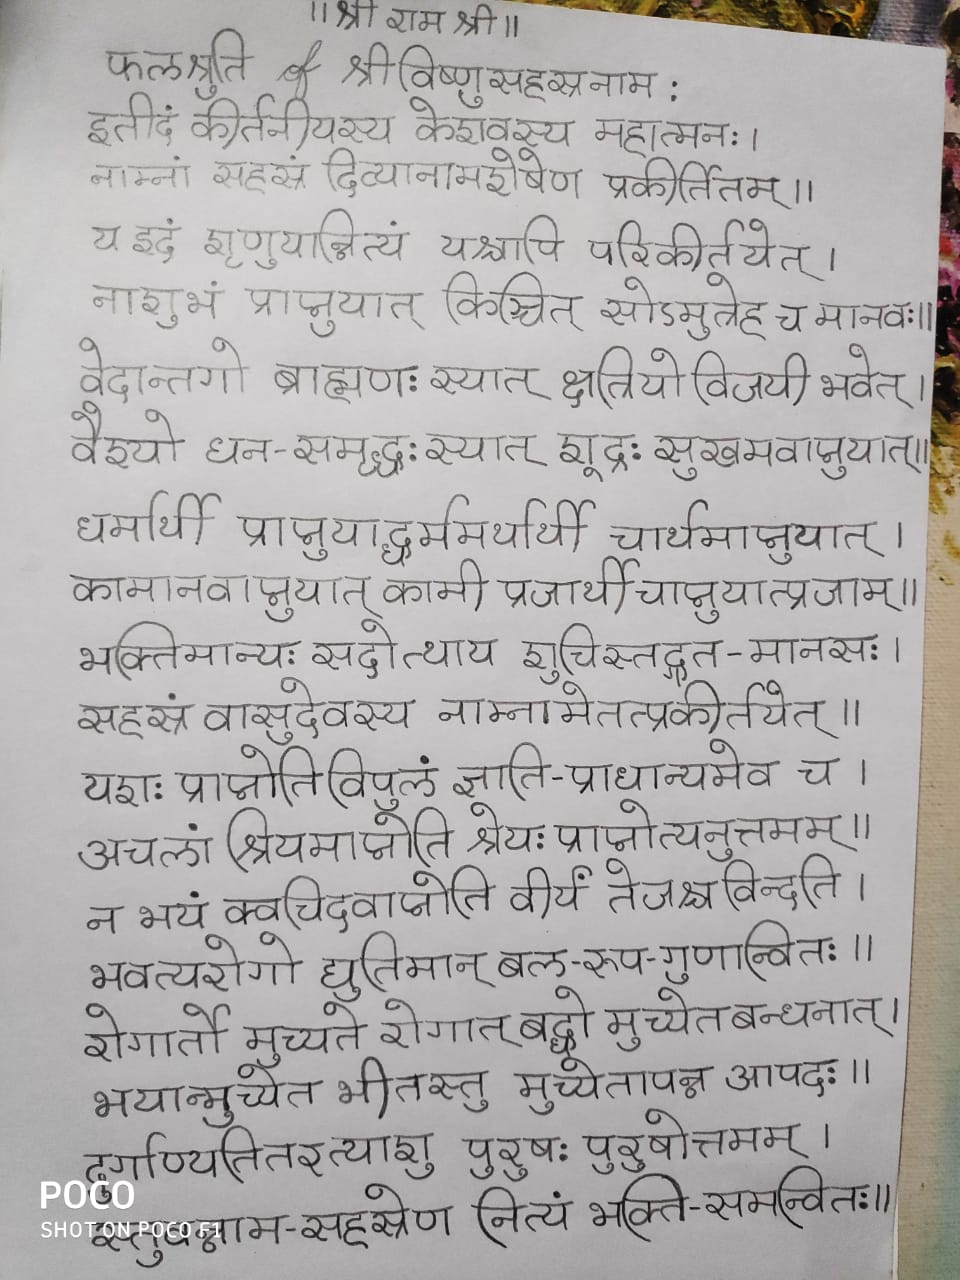 ॥ श्री राम श्री ॥
फलश्रुति of श्रीविष्णुसहस्रनाम :
इतीदं कीर्तनीयस्य केशवस्य महात्मनः ।
नाम्नां सहस्रं दिव्यानामशेषेण प्रकीर्तितम् ॥
य इदं शृणुयान्नित्यं यश्चापि परिकीर्तयेत् ।
नाशुभं प्राप्नुयात् किञ्चित् सोऽमुत्रेह च मानवः ॥
वेदान्तगो ब्राह्मणः स्यात् क्षत्रियो विजयी भवेत् ।
वैश्यो धन-समृद्धः स्यात् शूद्रः सुखमवाप्नुयात् ॥
धर्मार्थी प्राप्नुयाद्धर्ममर्थार्थी चार्थमाप्नुयात् ।
कामानवाप्नुयात् कामी प्रजार्थी चाप्नुयात्प्रजाम् ॥
भक्तिमान्यः सदोत्थाय शुचिस्तद्गत-मानसः ।
सहस्रं वासुदेवस्य नाम्नामेतत्प्रकीर्तयेत् ॥
यशः प्राप्नोति विपुलं ज्ञाति-प्राधान्यमेव च ।
अचलां श्रियमाप्नोति श्रेयः प्राप्नोत्यनुत्तमम् ॥
न भयं क्वचिदवाप्नोति वीर्यं तेजश्च विन्दति ।
भवत्यरोगो द्युतिमान् बल-रूप-गुणान्वितः ॥
रोगार्तो मुच्यते रोगात् बद्धो मुच्येत बन्धनात् ।
भयान्मुच्येत भीतस्तु मुच्येतापन्न आपदः ॥
दुर्गाण्यतितरत्याशु पुरुषः पुरुषोत्तमम् ।
स्तुवन्नाम-सहस्रेण नित्यं भक्ति-समन्वितः ॥
POCO
SHOT ON POCO F1